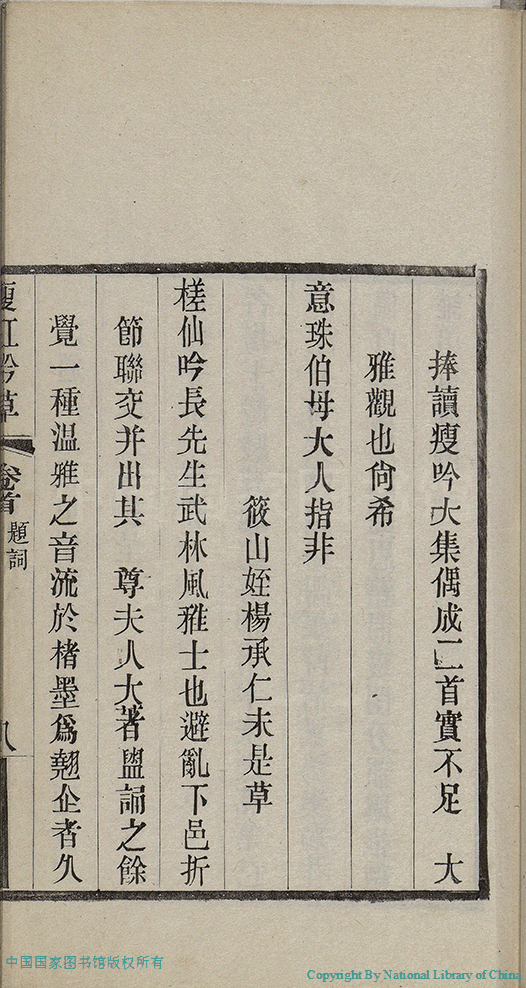 捧讀瘦吟大集偶成二首實不足　大
雅觀也尙希
意珠伯母大人指非
筱山姪楊承仁未是草
槎仙吟長先生武林風雅士也避亂下邑折
節聯交并出其　尊夫人大著盥誦之餘
覺一種溫雅之音流於楮墨爲翹企者久
瘦紅吟草　卷首　題詞　八
中国国家图书馆版权所有
Copyright By National Library of China